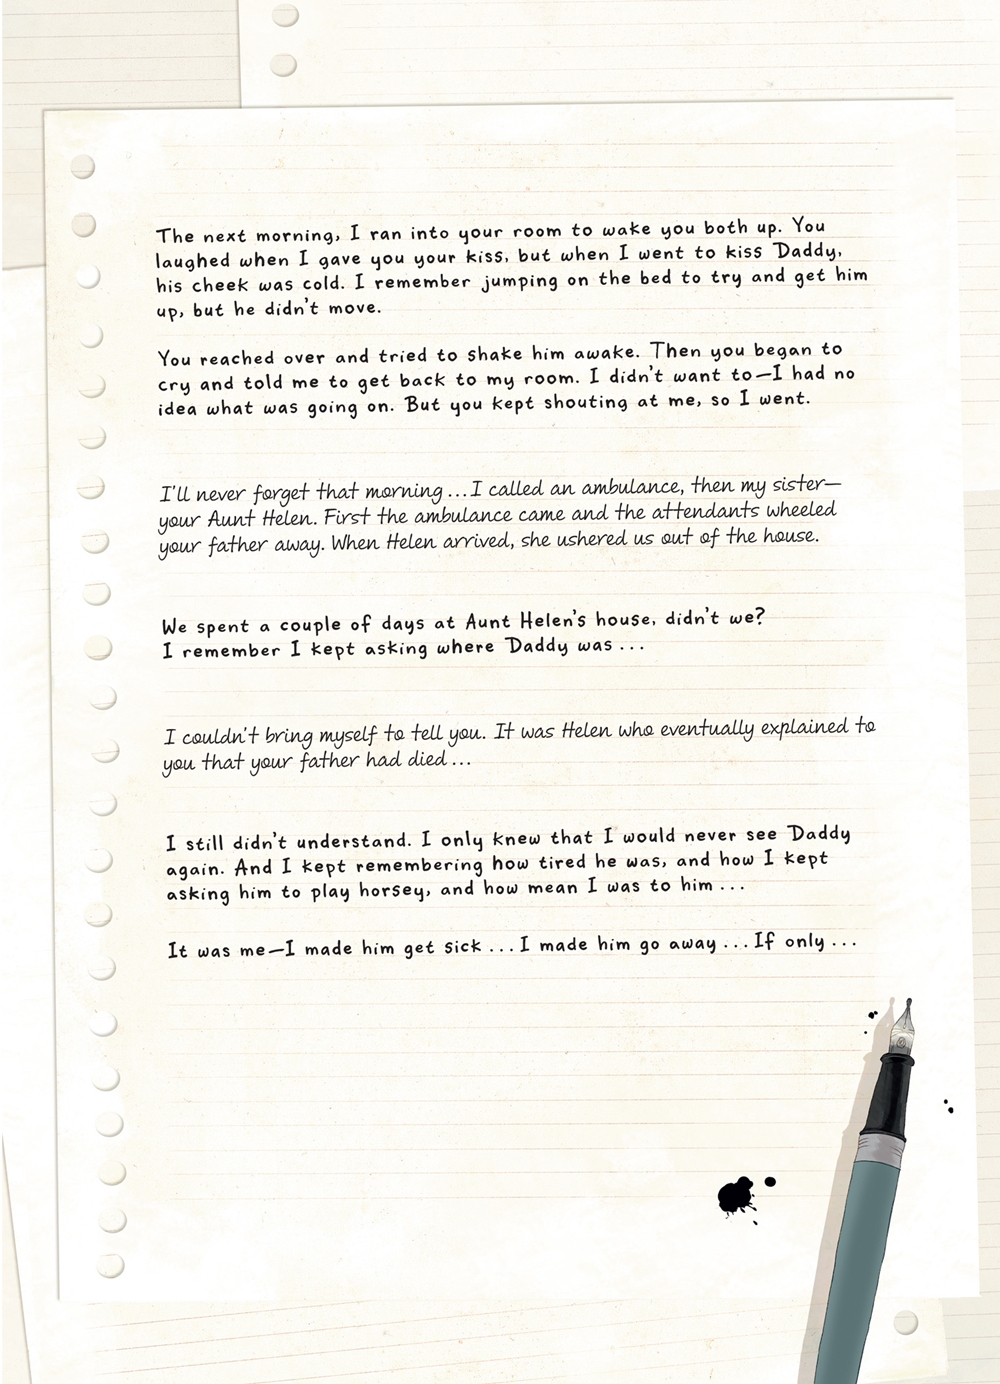 The next morning, I ran into your room to wake you both up. You
laughed when I gave you your kiss, but when I went to kiss Daddy,
his cheek was cold. I remember jumping on the bed to try and get him
up, but he didn't move.
You reached over and tried to shake him awake. Then you began to
cry and told me to get back to my room. I didn't want to—I had no
idea what was going on. But you kept shouting at me, so I went.
I'll never forget that morning...I called an ambulance, then my sister—
your Aunt Helen. First the ambulance came and the attendants wheeled
your father away. When Helen arrived, she ushered us out of the house.
We spent a couple of days at Aunt Helen's house, didn't we?
I remember I kept asking where Daddy was...
I couldn't bring myself to tell you. It was Helen who eventually explained to
you that your father had died...
I still didn't understand. I only knew that I would never see Daddy
again. And I kept remembering how tired he was, and how I kept
asking him to play horsey, and how mean I was to him...
It was me—I made him get sick...I made him go away...If only...